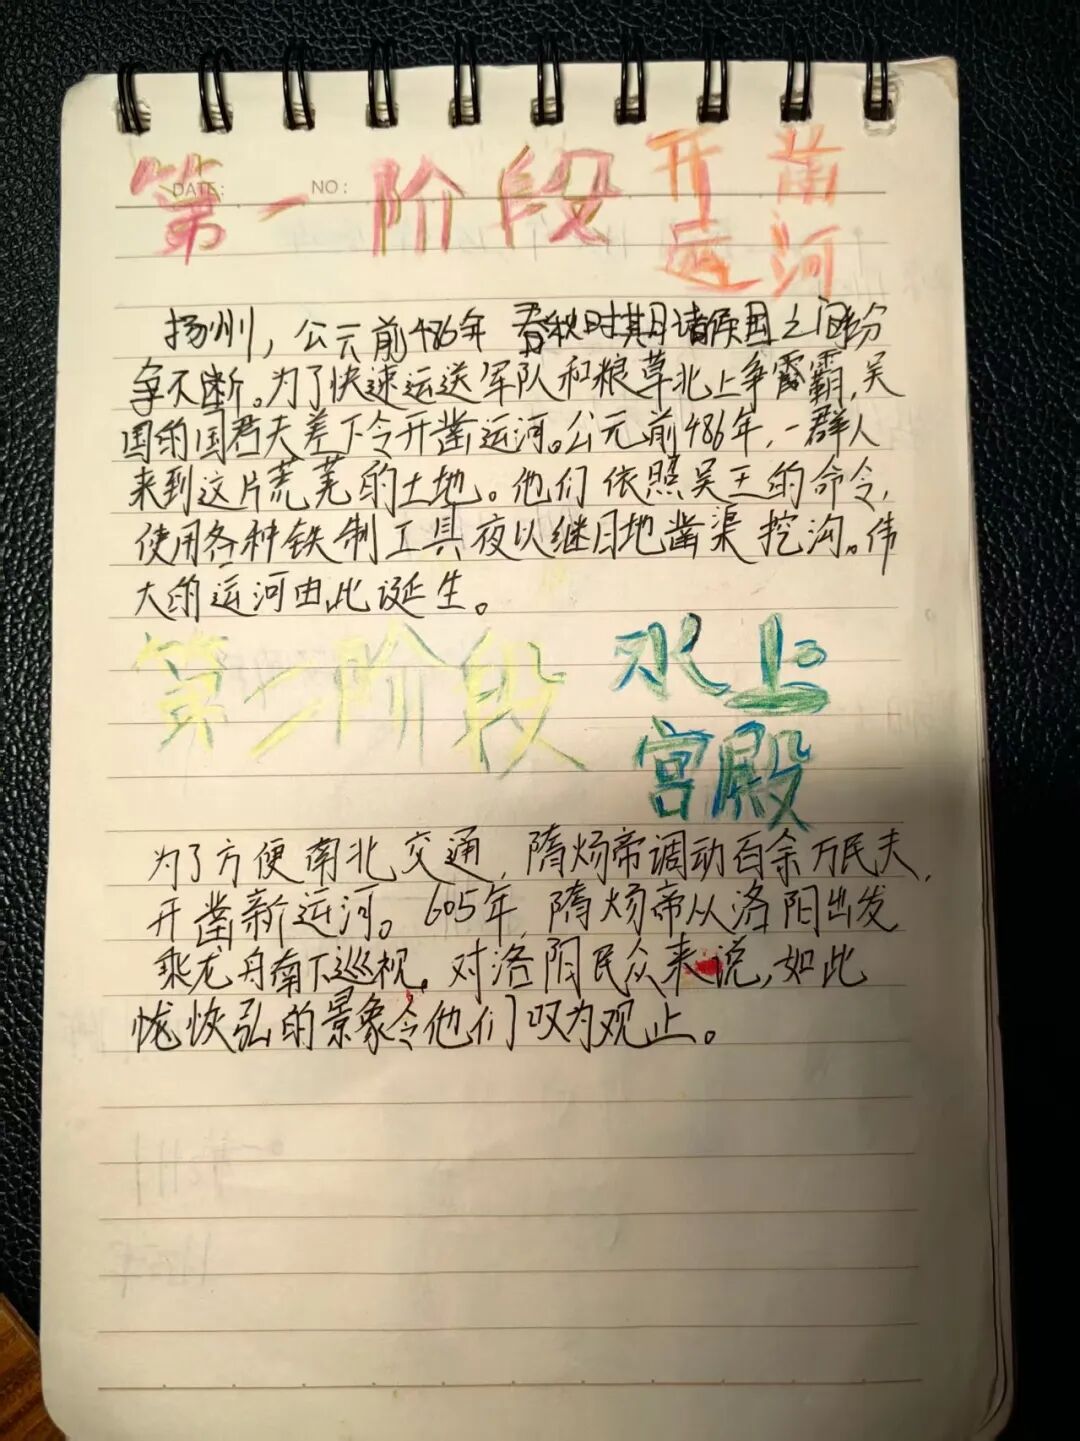 DATE: NO:
第一阶段 开凿
运河
扬州，公云前486年 春秋时其月诸侯国之间纷
争不断。为了快速运送军队和粮草北上争霸，吴
国的国君夫差下令开凿运河。公元前486年，一群人
来到这片荒芜的土地。他们依照吴王的命令，
使用各种铁制工具夜以继日地凿渠挖沟。伟
大的运河由此诞生。
第二阶段 水上
宫殿
为了方便南北交通，隋炀帝调动百余万民夫，
开凿新运河。605年，隋炀帝从洛阳出发
乘龙舟南下巡视。对洛阴民众来说，如此
恢弘的景象令他们叹为观止。